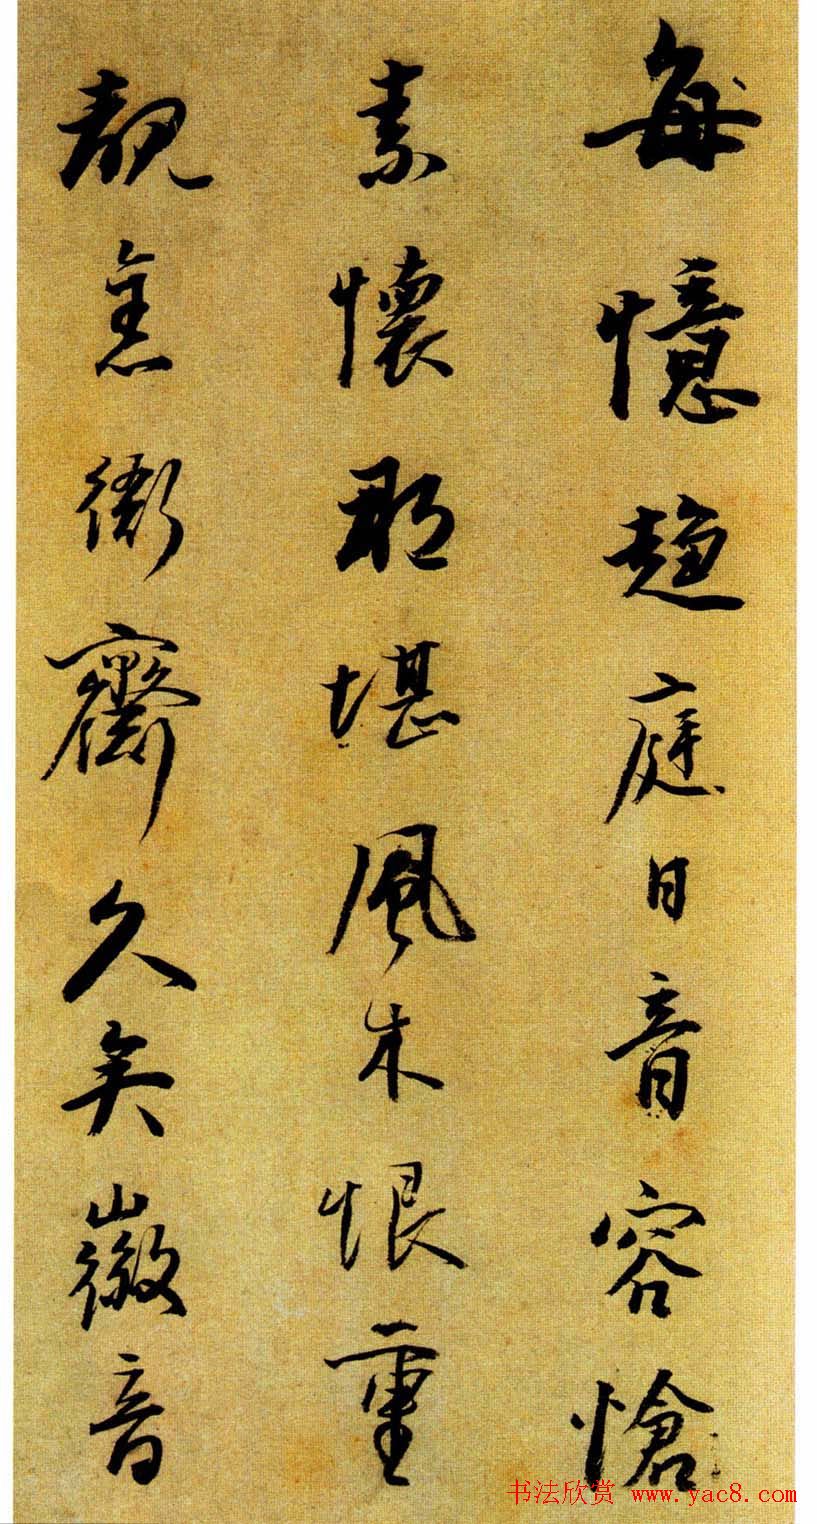 每憶趨庭日音容愴
素懷那堪風木恨重
覩舊衙齋久矣徽音
书法欣赏 www.yac8.com